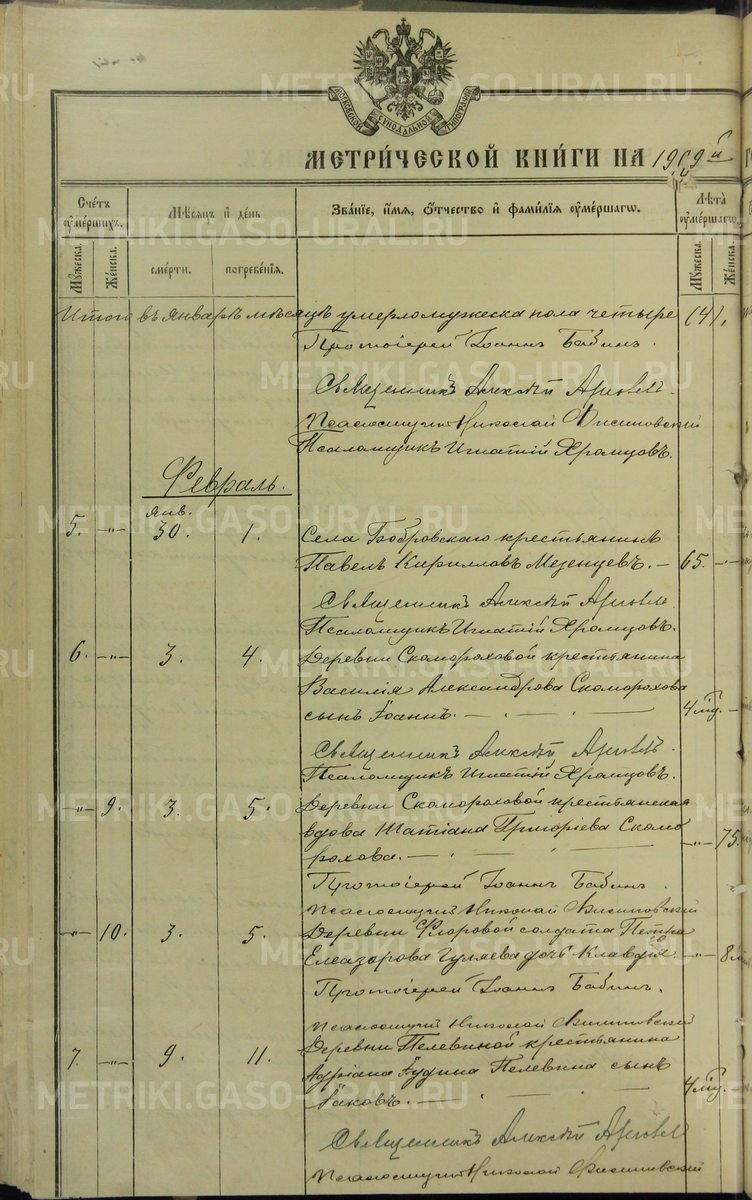 МОСКОВСКОЙ СѴНОДАЛЬНОЙ ТИПОГРАФІИ
МЕТРИ́ЧЕСКОЙ КНИ́ГИ НА 1909й
Сче́тъ ᲂу҆ме́ршихъ.
Мѣ́сяцъ и҆ де́нь
Зва́нїе, и҆́мѧ, ѻ҆́тчество и҆ фами́лїѧ ᲂу҆ме́ршагѡ.
Лѣ́та ᲂу҆ме́ршагѡ.
Мꙋ́жеска.
Же́нска.
сме́рти.
погребе́нїѧ.
Мꙋ́жеска.
Же́нска.
Итого въ январѣ мѣсяцѣ умерло мужеска пола четыре (4).
Протоіерей Іоаннъ Бабинъ.
Священникъ Алексѣй
Псаломщикъ Николай
Псаломщикъ Игнатій Храмцовъ.
Февраль.
Янв.
5. -"- 30. 1. Села Бобровскаго крестьянинъ
Павелъ Кирилловъ Мезенцевъ. — 65. -"-
Священникъ Алексѣй
Псаломщикъ Игнатій Храмцовъ.
6. -"- 3. 4. Деревни Скомороховой крестьянина
Василія Александрова Скоморохова
сынъ Іоаннъ. — 4 мѣс. —
Священникъ Алексѣй
Псаломщикъ Игнатій Храмцовъ.
-"- 9. 3. 5. Деревни Скомороховой крестьянская
вдова Татіана Григоріева Скомо
рохова. — -"- 75.
Протоіерей Іоаннъ Бабинъ.
Псаломщикъ Николай
-"- 10. 3. 5. Деревни Флоровой солдата Петра
Елеазарова Гуляева дочь Клавдія. -"- 8
Протоіерей Іоаннъ Бабинъ.
Псаломщикъ Николай
7. -"- 9. 11. Деревни Пелевиной крестьянина
Адріана Іудина Пелевина сынъ
Іаковъ. — 4 мѣс. —
Священникъ Алексѣй
Псаломщикъ Николай
METRIKI.GASO-URAL.RU